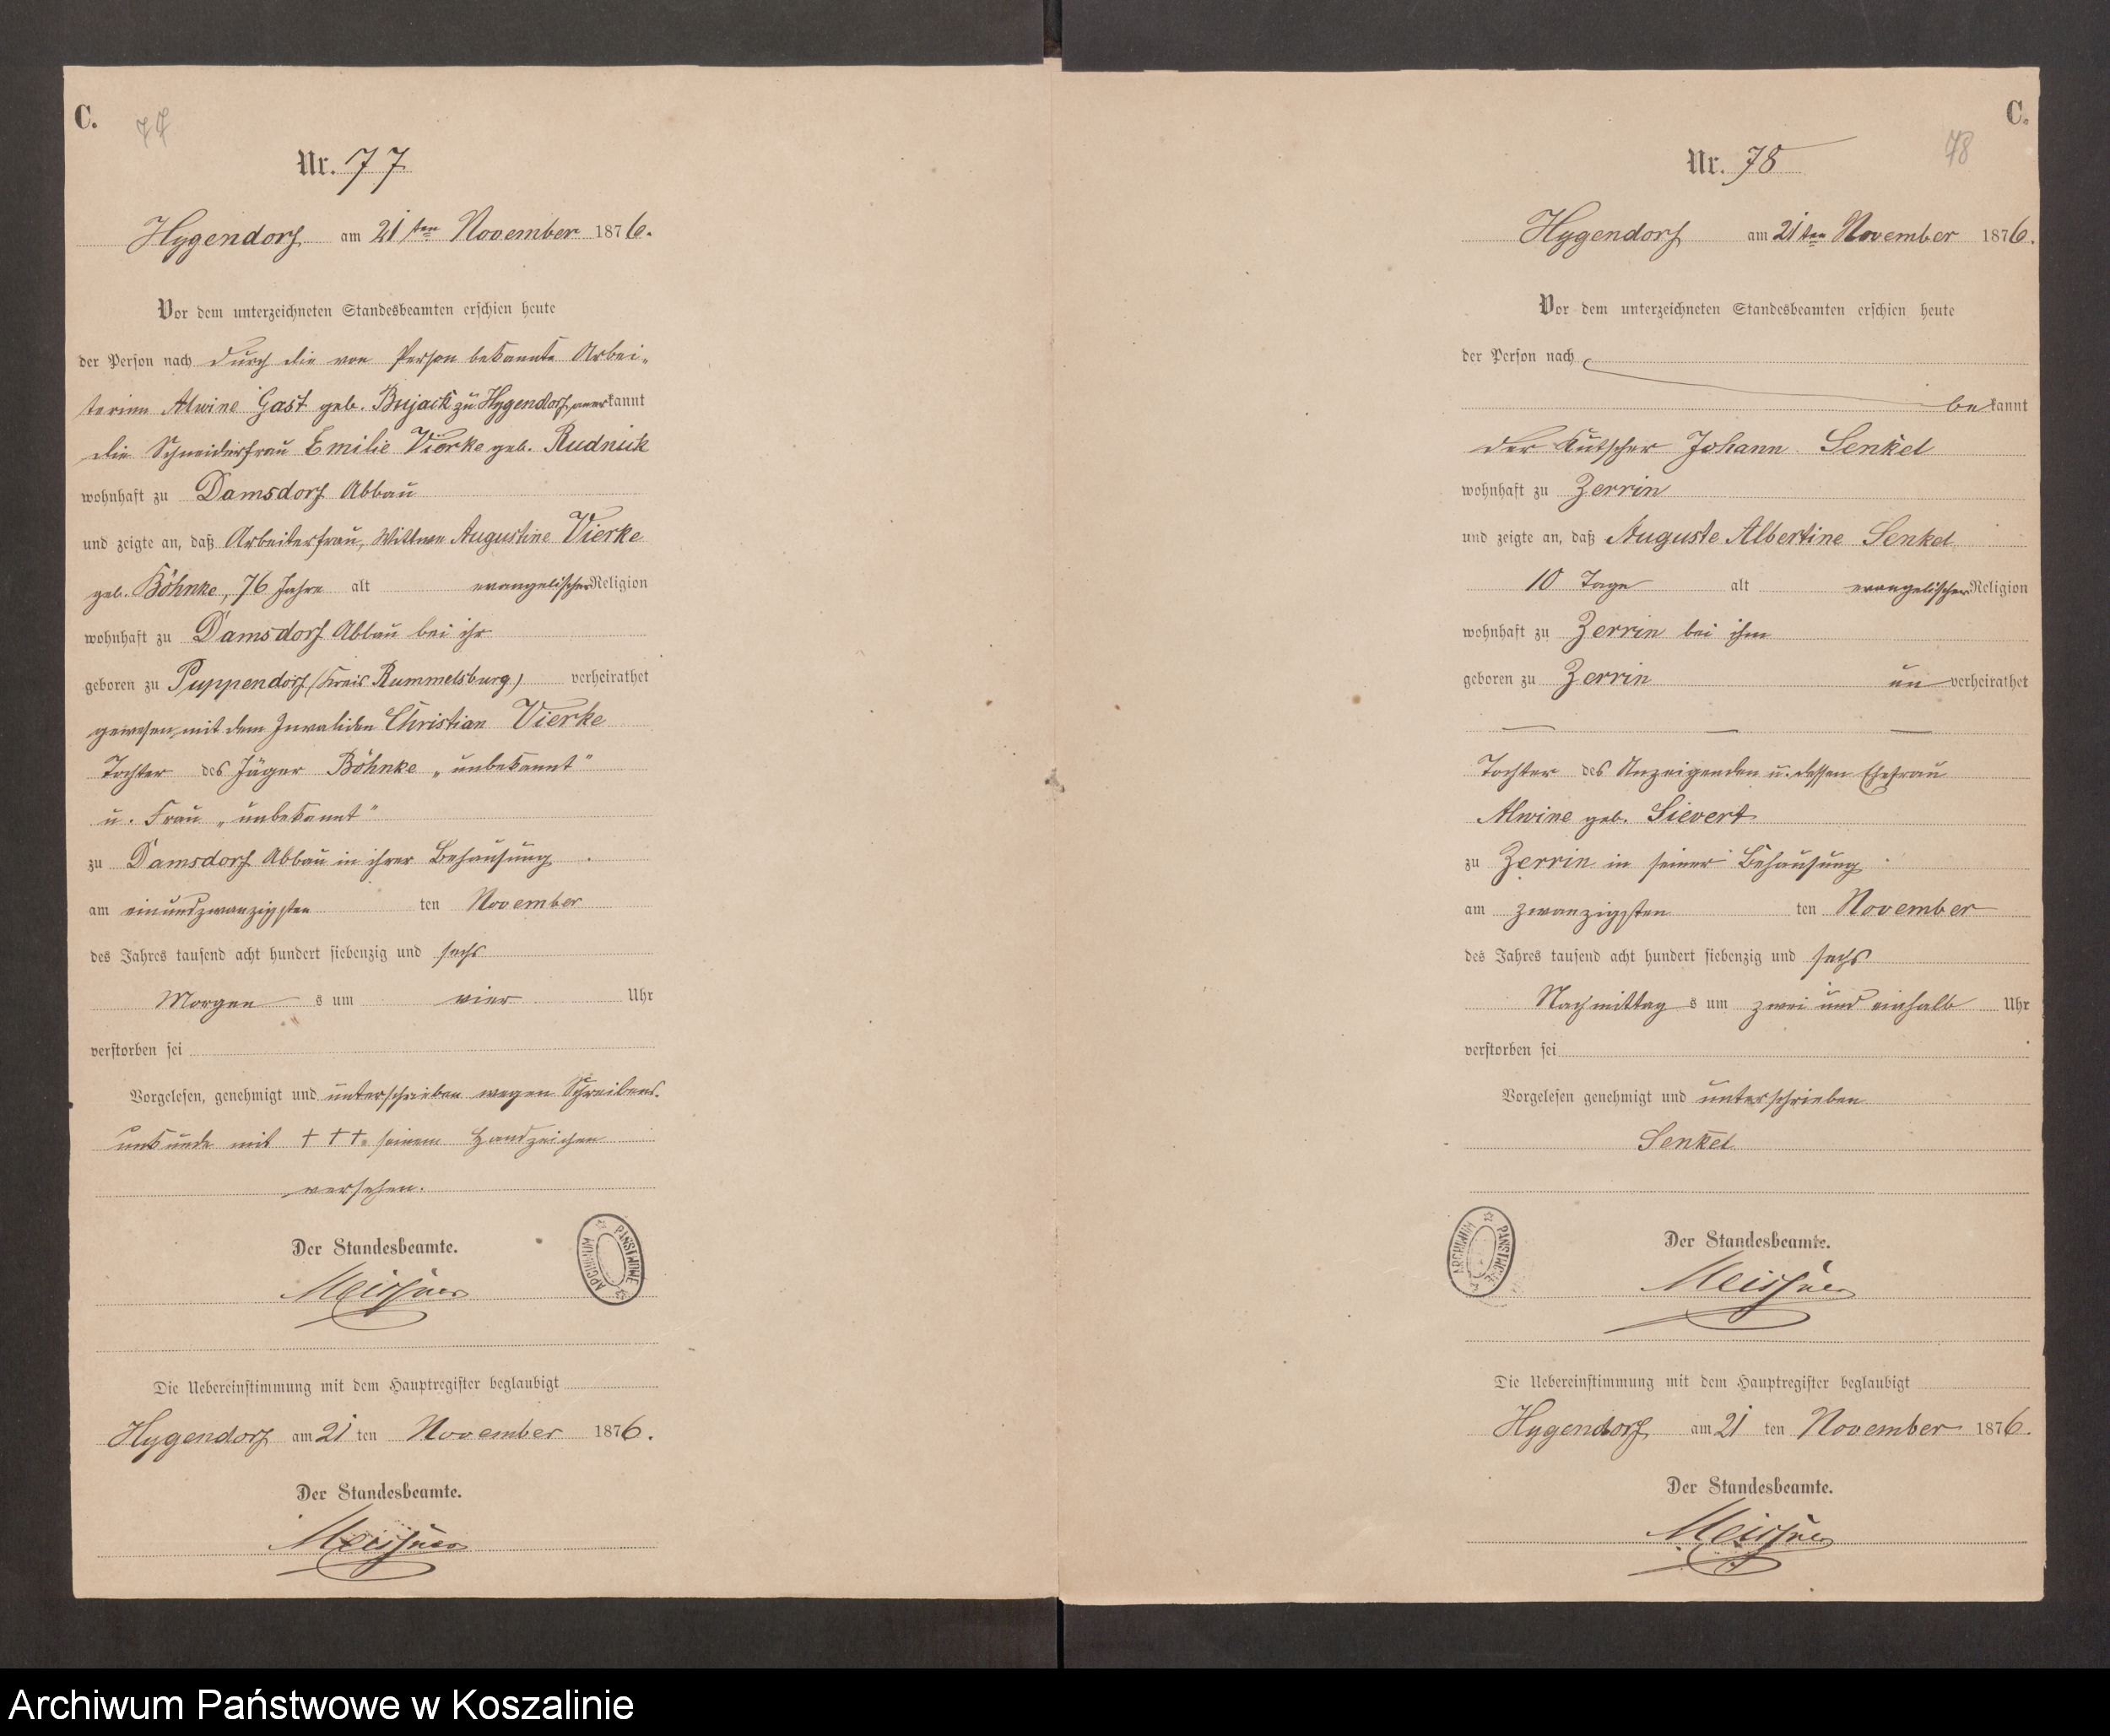 C.
77
Nr. 77
Hygendorf am 21ten November 1876.
Vor dem unterzeichneten Standesbeamten erschien heute
der Person nach durch die von Person bekannte Arbei-
terinn Alwine Gast geb. Bujack zu Hygendorf, anerkannt
die Schneiderfrau Emilie Vierke geb. Rudnick
wohnhaft zu Damsdorf Abbau
und zeigte an, daß Arbeiterfrau, Wittwe Augustine Vierke
geb. Böhnke, 76 Jahre alt evangelischer Religion
wohnhaft zu Damsdorf Abbau bei ihr
geboren zu Puppendorf (Kreis Rummelsburg) verheirathet
gewesen mit dem Invaliden Christian Vierke
Tochter des Jäger Böhnke „unbekannt"
u. Frau „unbekannt"
zu Damsdorf Abbau in ihrer Behausung
am einundzwanzigsten ten November
des Jahres tausend acht hundert siebenzig und sechs
Morgens um vier Uhr
verstorben sei
Vorgelesen, genehmigt und unterschrieben wegen Schreibens-
unkunde mit † † †. seinem Handzeichen
versehen.
Der Standesbeamte.
Meissner
ARCHIWUM PAŃSTWOWE
Die Uebereinstimmung mit dem Hauptregister beglaubigt
Hygendorf am 21 ten November 1876.
Der Standesbeamte.
Meissner
C.
78
Nr. 78
Hygendorf am 21ten November 1876.
Vor dem unterzeichneten Standesbeamten erschien heute
der Person nach
bekannt
der Kutscher Johann Senkel
wohnhaft zu Zerrin
und zeigte an, daß Auguste Albertine Senkel
10 Tage alt evangelischer Religion
wohnhaft zu Zerrin bei ihm
geboren zu Zerrin unverheirathet
Tochter des Anzeigenden u. dessen Ehefrau
Alwine geb. Sievert
zu Zerrin in seiner Behausung
am zwanzigsten ten November
des Jahres tausend acht hundert siebenzig und sechs
Nachmittags um zwei und einhalb Uhr
verstorben sei
Vorgelesen genehmigt und unterschrieben
Senkel
Der Standesbeamte.
Meissner
ARCHIWUM PAŃSTWOWE
Die Uebereinstimmung mit dem Hauptregister beglaubigt
Hygendorf am 21 ten November 1876.
Der Standesbeamte.
Meissner
Archiwum Państwowe w Koszalinie